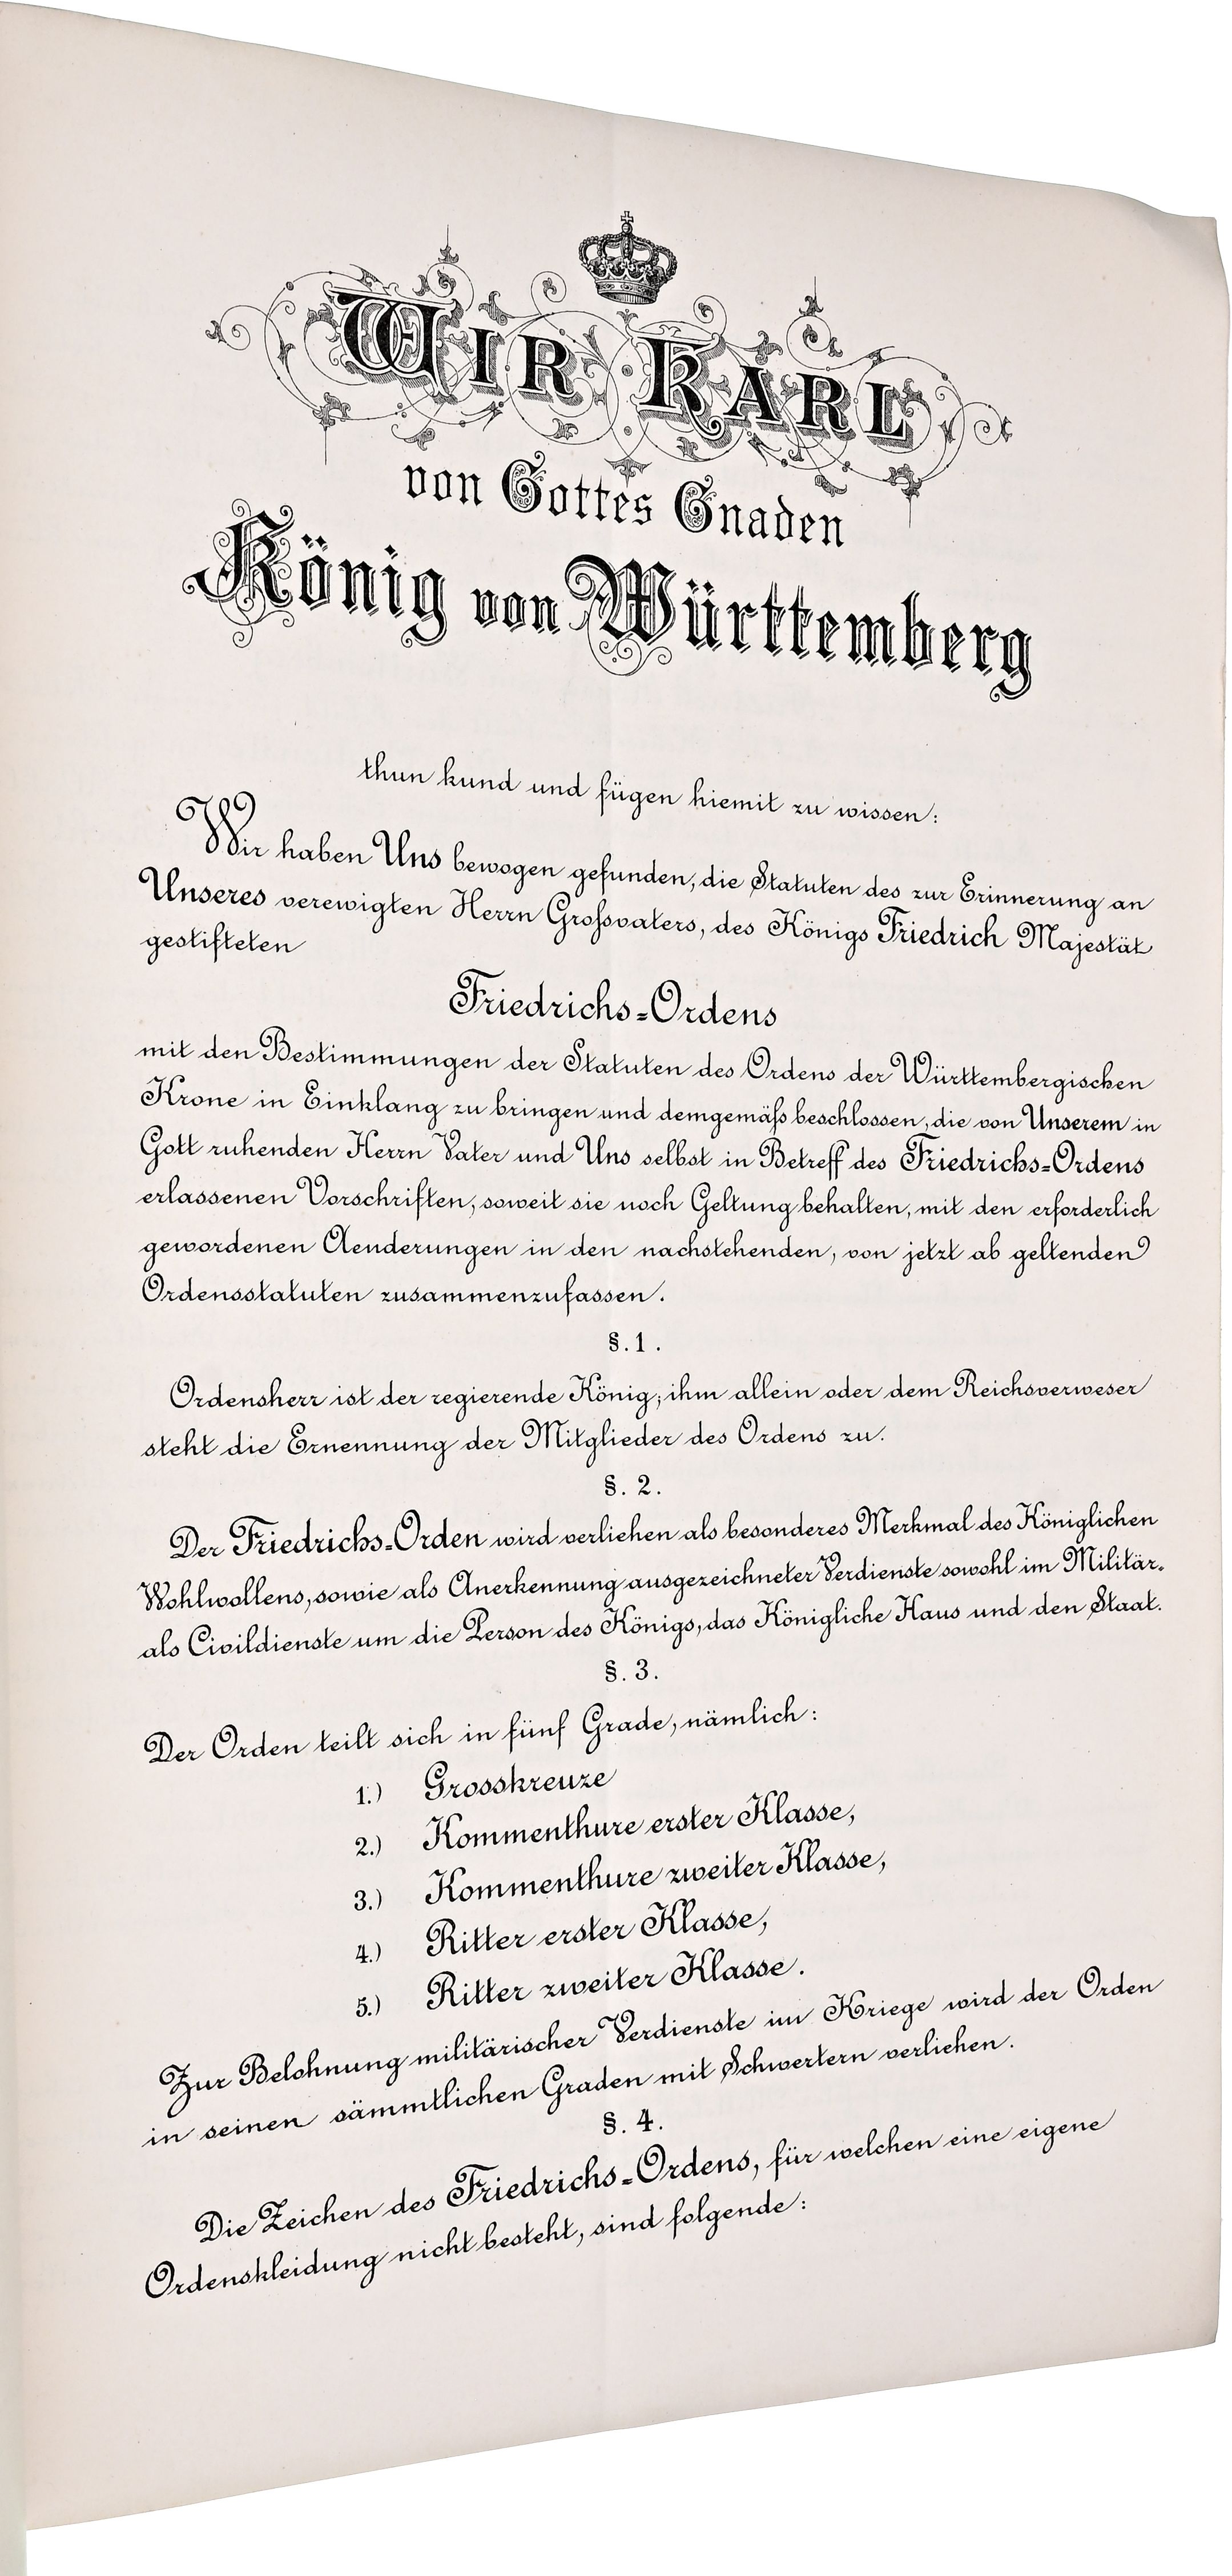 WIR KARL
von Gottes Gnaden
König von Württemberg
thun kund und fügen hiemit zu wissen:
Wir haben Uns bewogen gefunden, die Statuten des zur Erinnerung an
Unseres verewigten Herrn Grossvaters, des Königs Friedrich Majestät
gestifteten
Friedrichs-Ordens
mit den Bestimmungen der Statuten des Ordens der Württembergischen
Krone in Einklang zu bringen und demgemäss beschlossen, die von Unserem in
Gott ruhenden Herrn Vater und Uns selbst in Betreff des Friedrichs-Ordens
erlassenen Vorschriften, soweit sie noch Geltung behalten, mit den erforderlich
gewordenen Aenderungen in den nachstehenden, von jetzt ab geltenden
Ordensstatuten zusammenzufassen.
§. 1.
Ordensherr ist der regierende König; ihm allein oder dem Reichsverweser
steht die Ernennung der Mitglieder des Ordens zu.
§. 2.
Der Friedrichs-Orden wird verliehen als besonderes Merkmal des Königlichen
Wohlwollens, sowie als Anerkennung ausgezeichneter Verdienste sowohl im Militär-
als Civildienste um die Person des Königs, das Königliche Haus und den Staat.
§. 3.
Der Orden teilt sich in fünf Grade, nämlich:
1.) Grosskreuze
2.) Kommenthure erster Klasse,
3.) Kommenthure zweiter Klasse,
4.) Ritter erster Klasse,
5.) Ritter zweiter Klasse.
Zur Belohnung militärischer Verdienste im Kriege wird der Orden
in seinen sämmtlichen Graden mit Schwertern verliehen.
§. 4.
Die Zeichen des Friedrichs-Ordens, für welchen eine eigene
Ordenskleidung nicht besteht, sind folgende: